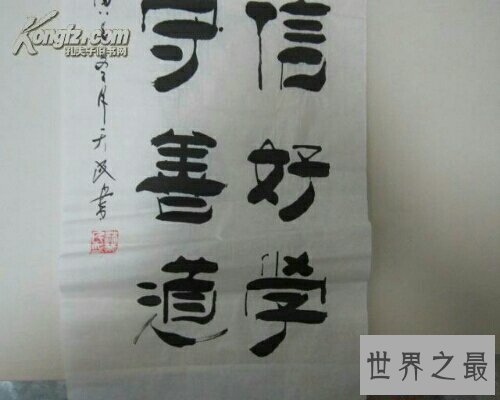 信好学
守善道
年冬月天
書
Kongfz.com
孔夫子旧书网
世界之最